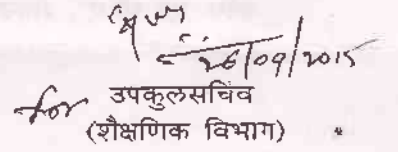 26/09/2015
for उपकुलसचिव
(शैक्षणिक विभाग)